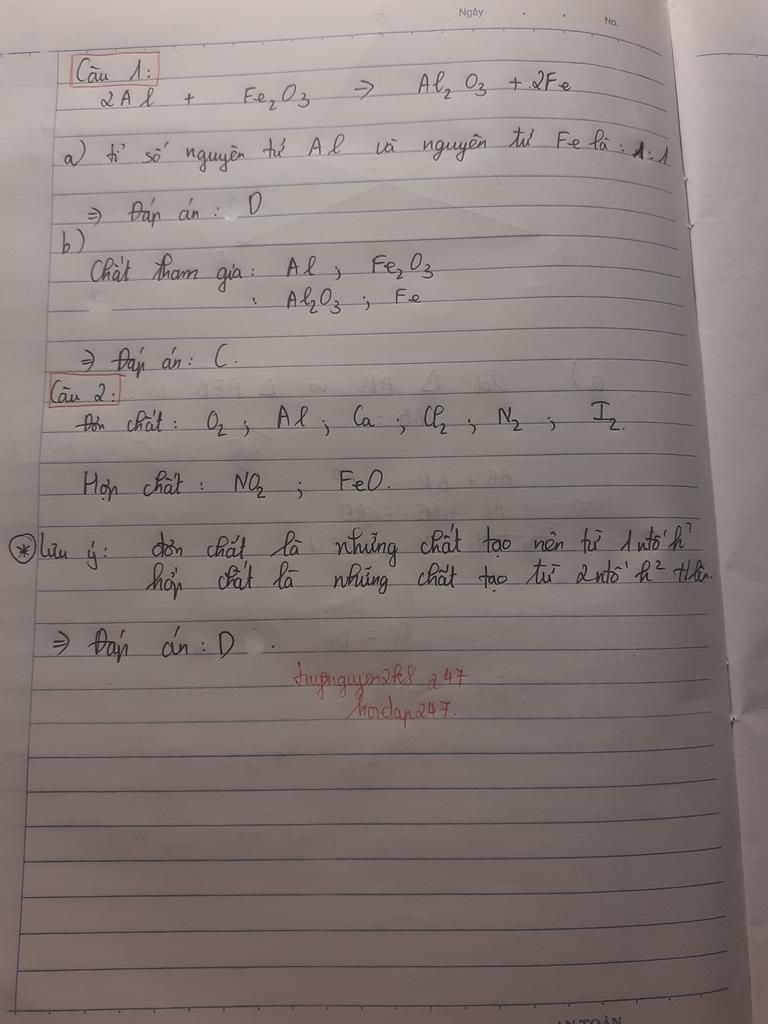 Ngày . . No.
Câu 1:
2Al + Fe₂O₃ → Al₂O₃ + 2Fe
a) tỉ số nguyên tử Al và nguyên tử Fe là : 1:1
⇒ Đáp án : D
b)
Chất tham gia : Al ; Fe₂O₃
: Al₂O₃ ; Fe
⇒ Đáp án : C.
Câu 2:
Đơn chất : O₂ ; Al ; Ca ; Cl₂ ; N₂ ; I₂.
Hợp chất : NO₂ ; FeO.
* Lưu ý : đơn chất là những chất tạo nên từ 1 ntố h²
hợp chất là những chất tạo từ 2 ntố h² tlên.
⇒ Đáp án : D .
247
hoidap247.